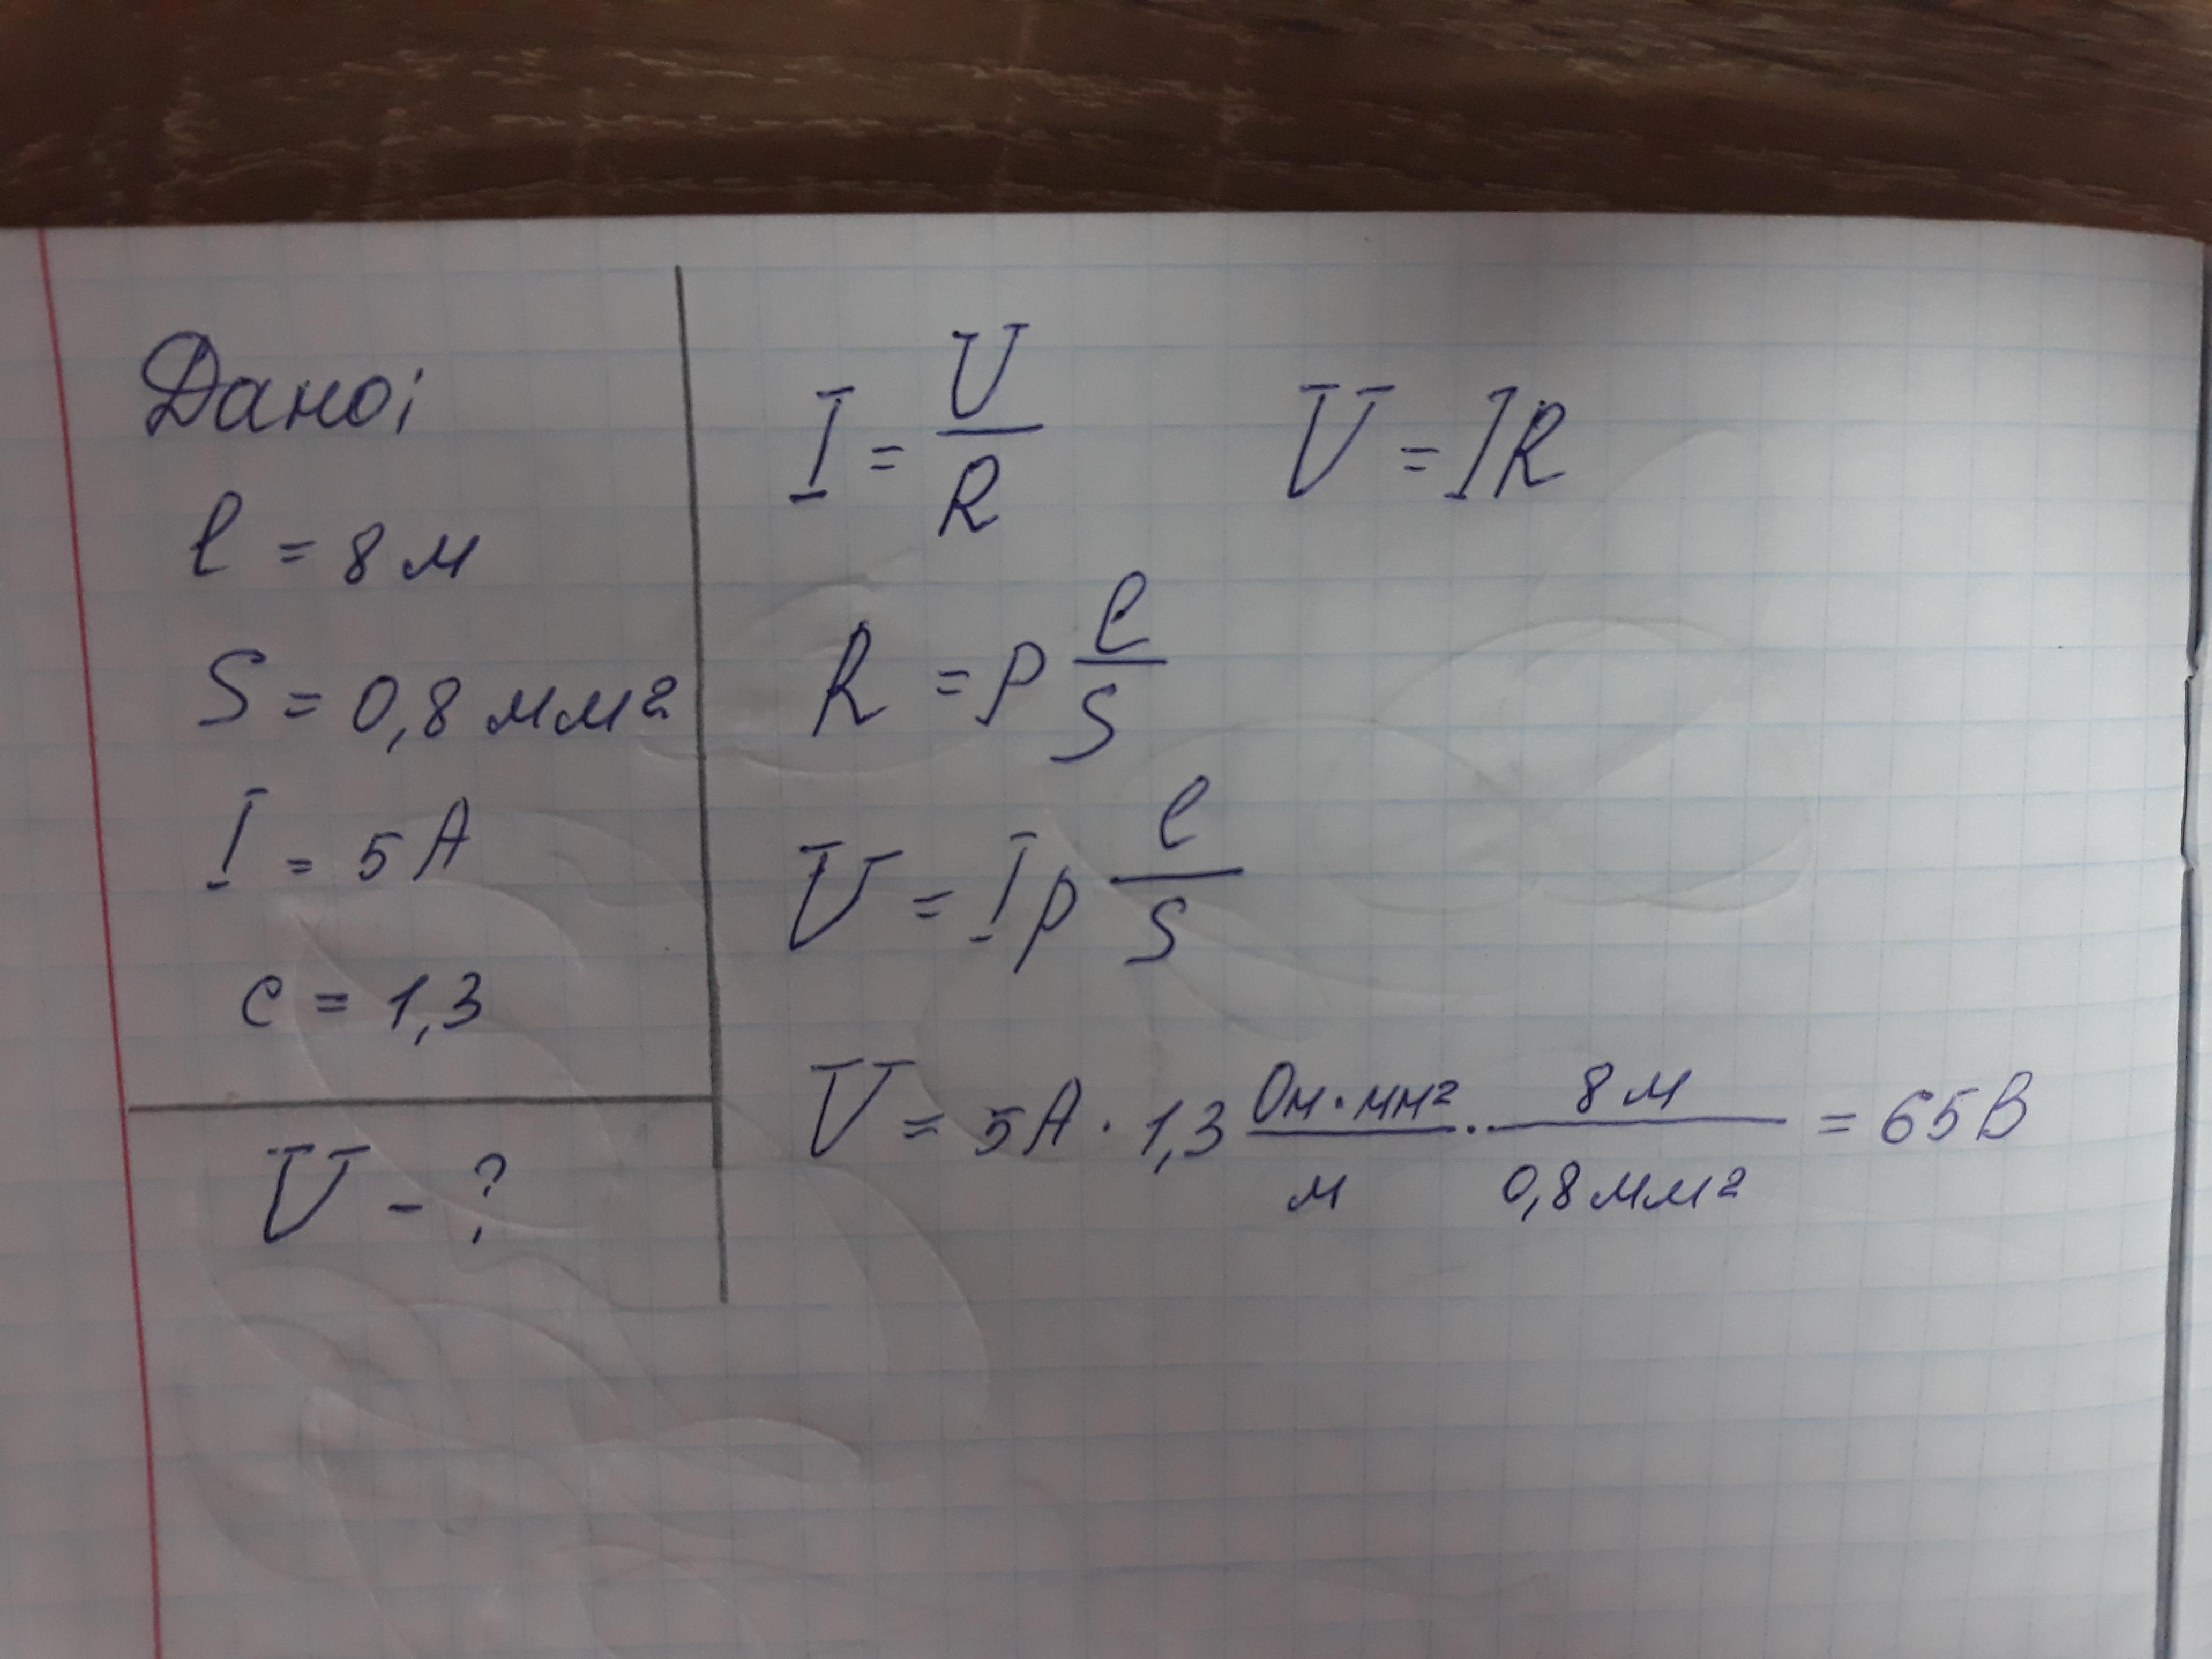 Дано:
l = 8 м
S = 0,8 мм2
I = 5 А
c = 1,3
U - ?
I = U/R   U = IR
R = ρ l/S
U = Iρ l/S
U = 5А · 1,3 Ом·мм2/м · 8 м/0,8 мм2 = 65В